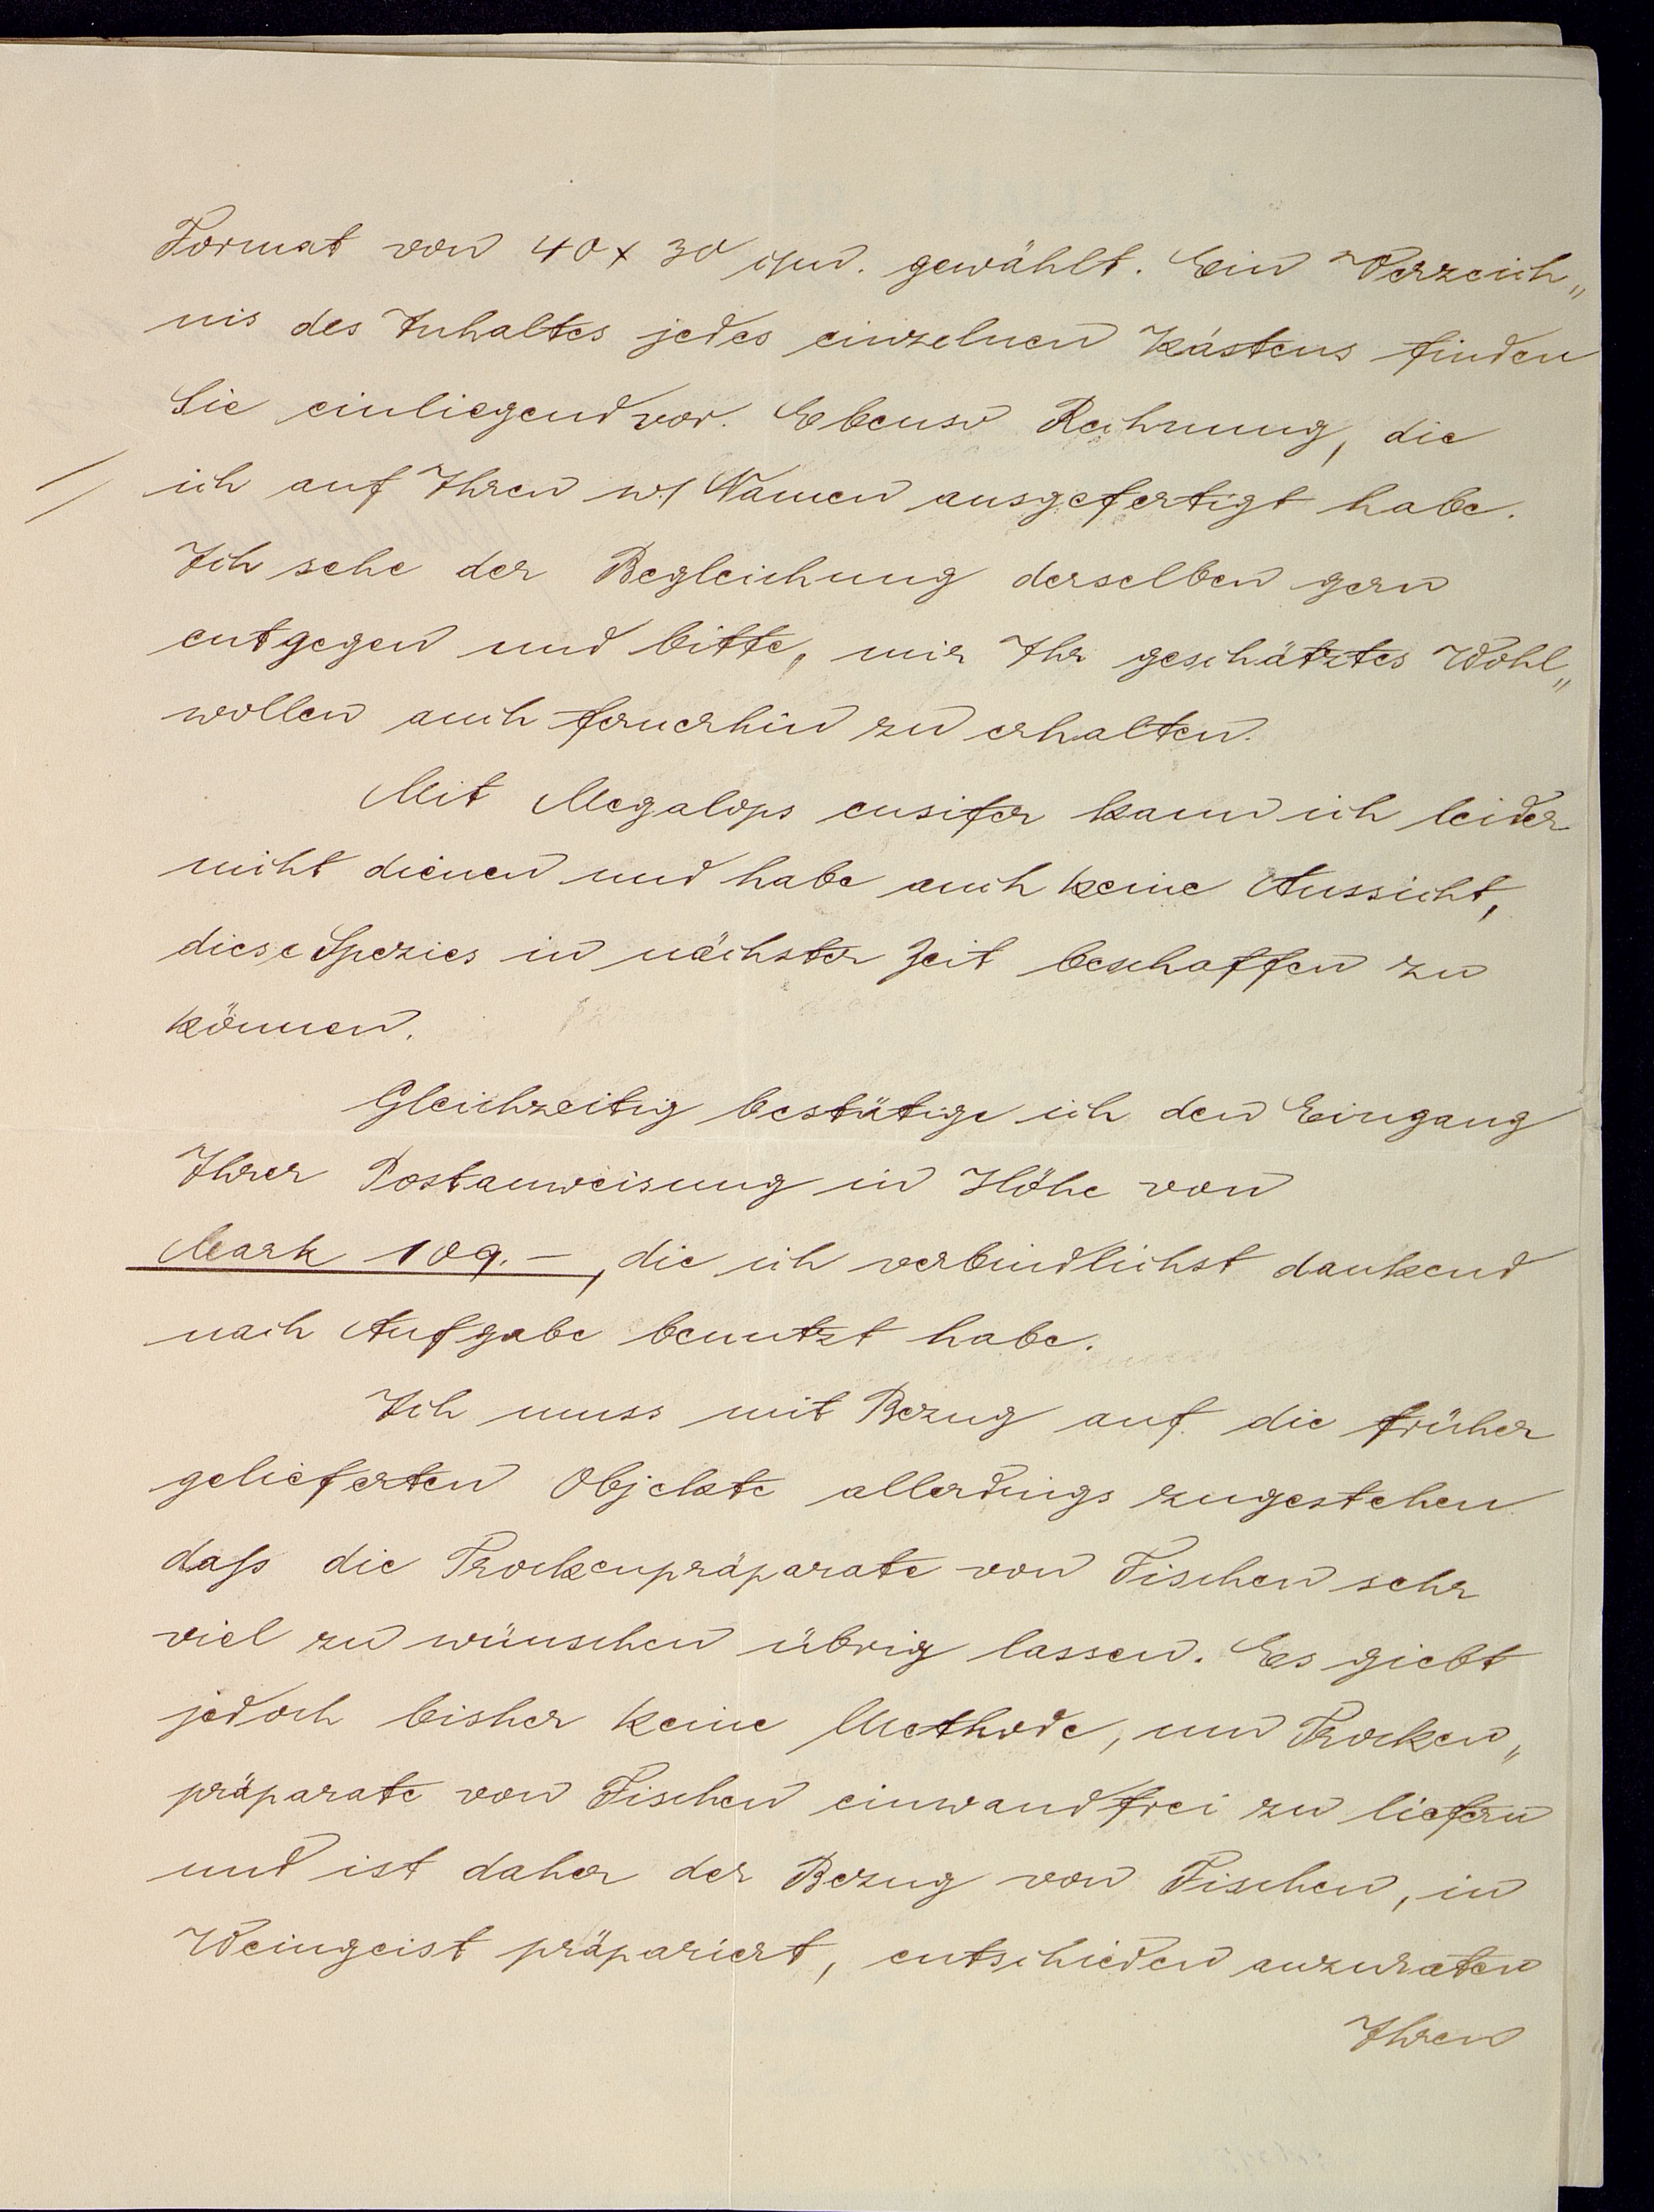 Format von 40 x 30 c/m. gewählt. Ein Verzeich„
nis des Inhaltes jedes einzelnen Kástens finden
Sie einliegend vor. Ebenso Rechnung, die
// ich auf Ihren w/ Namen ausgefertigt habe.
Ich sehe der Begleichung derselben gern
entgegen und bitte, mir Ihr geschätztes Wohl„
wollen auch fernerhin zu erhalten.
Mit Megalops ensifer kann ich leider
nicht dienen und habe auch keine Aussicht,
diese Spezies in nächster Zeit beschaffen zu
können.
Gleichzeitig bestätige ich den Eingang
Ihrer Postanweisung in Höhe von
Mark 109.—, die ich verbindlichst dankend
nach Aufgabe benutzt habe.
Ich muss mit Bezug auf die früher
gelieferten Objekte allerdings zugestehen
daſs die Trockenpräparate von Fischen sehr
viel zu wünschen übrig lassen. Es giebt
jedoch bisher keine Methode, um Trocken„
präparate von Fischen einwandfrei zu liefern
und ist daher der Bezug von Fischen, in
Weingeist präpariert, entschieden anzuraten
Ihren